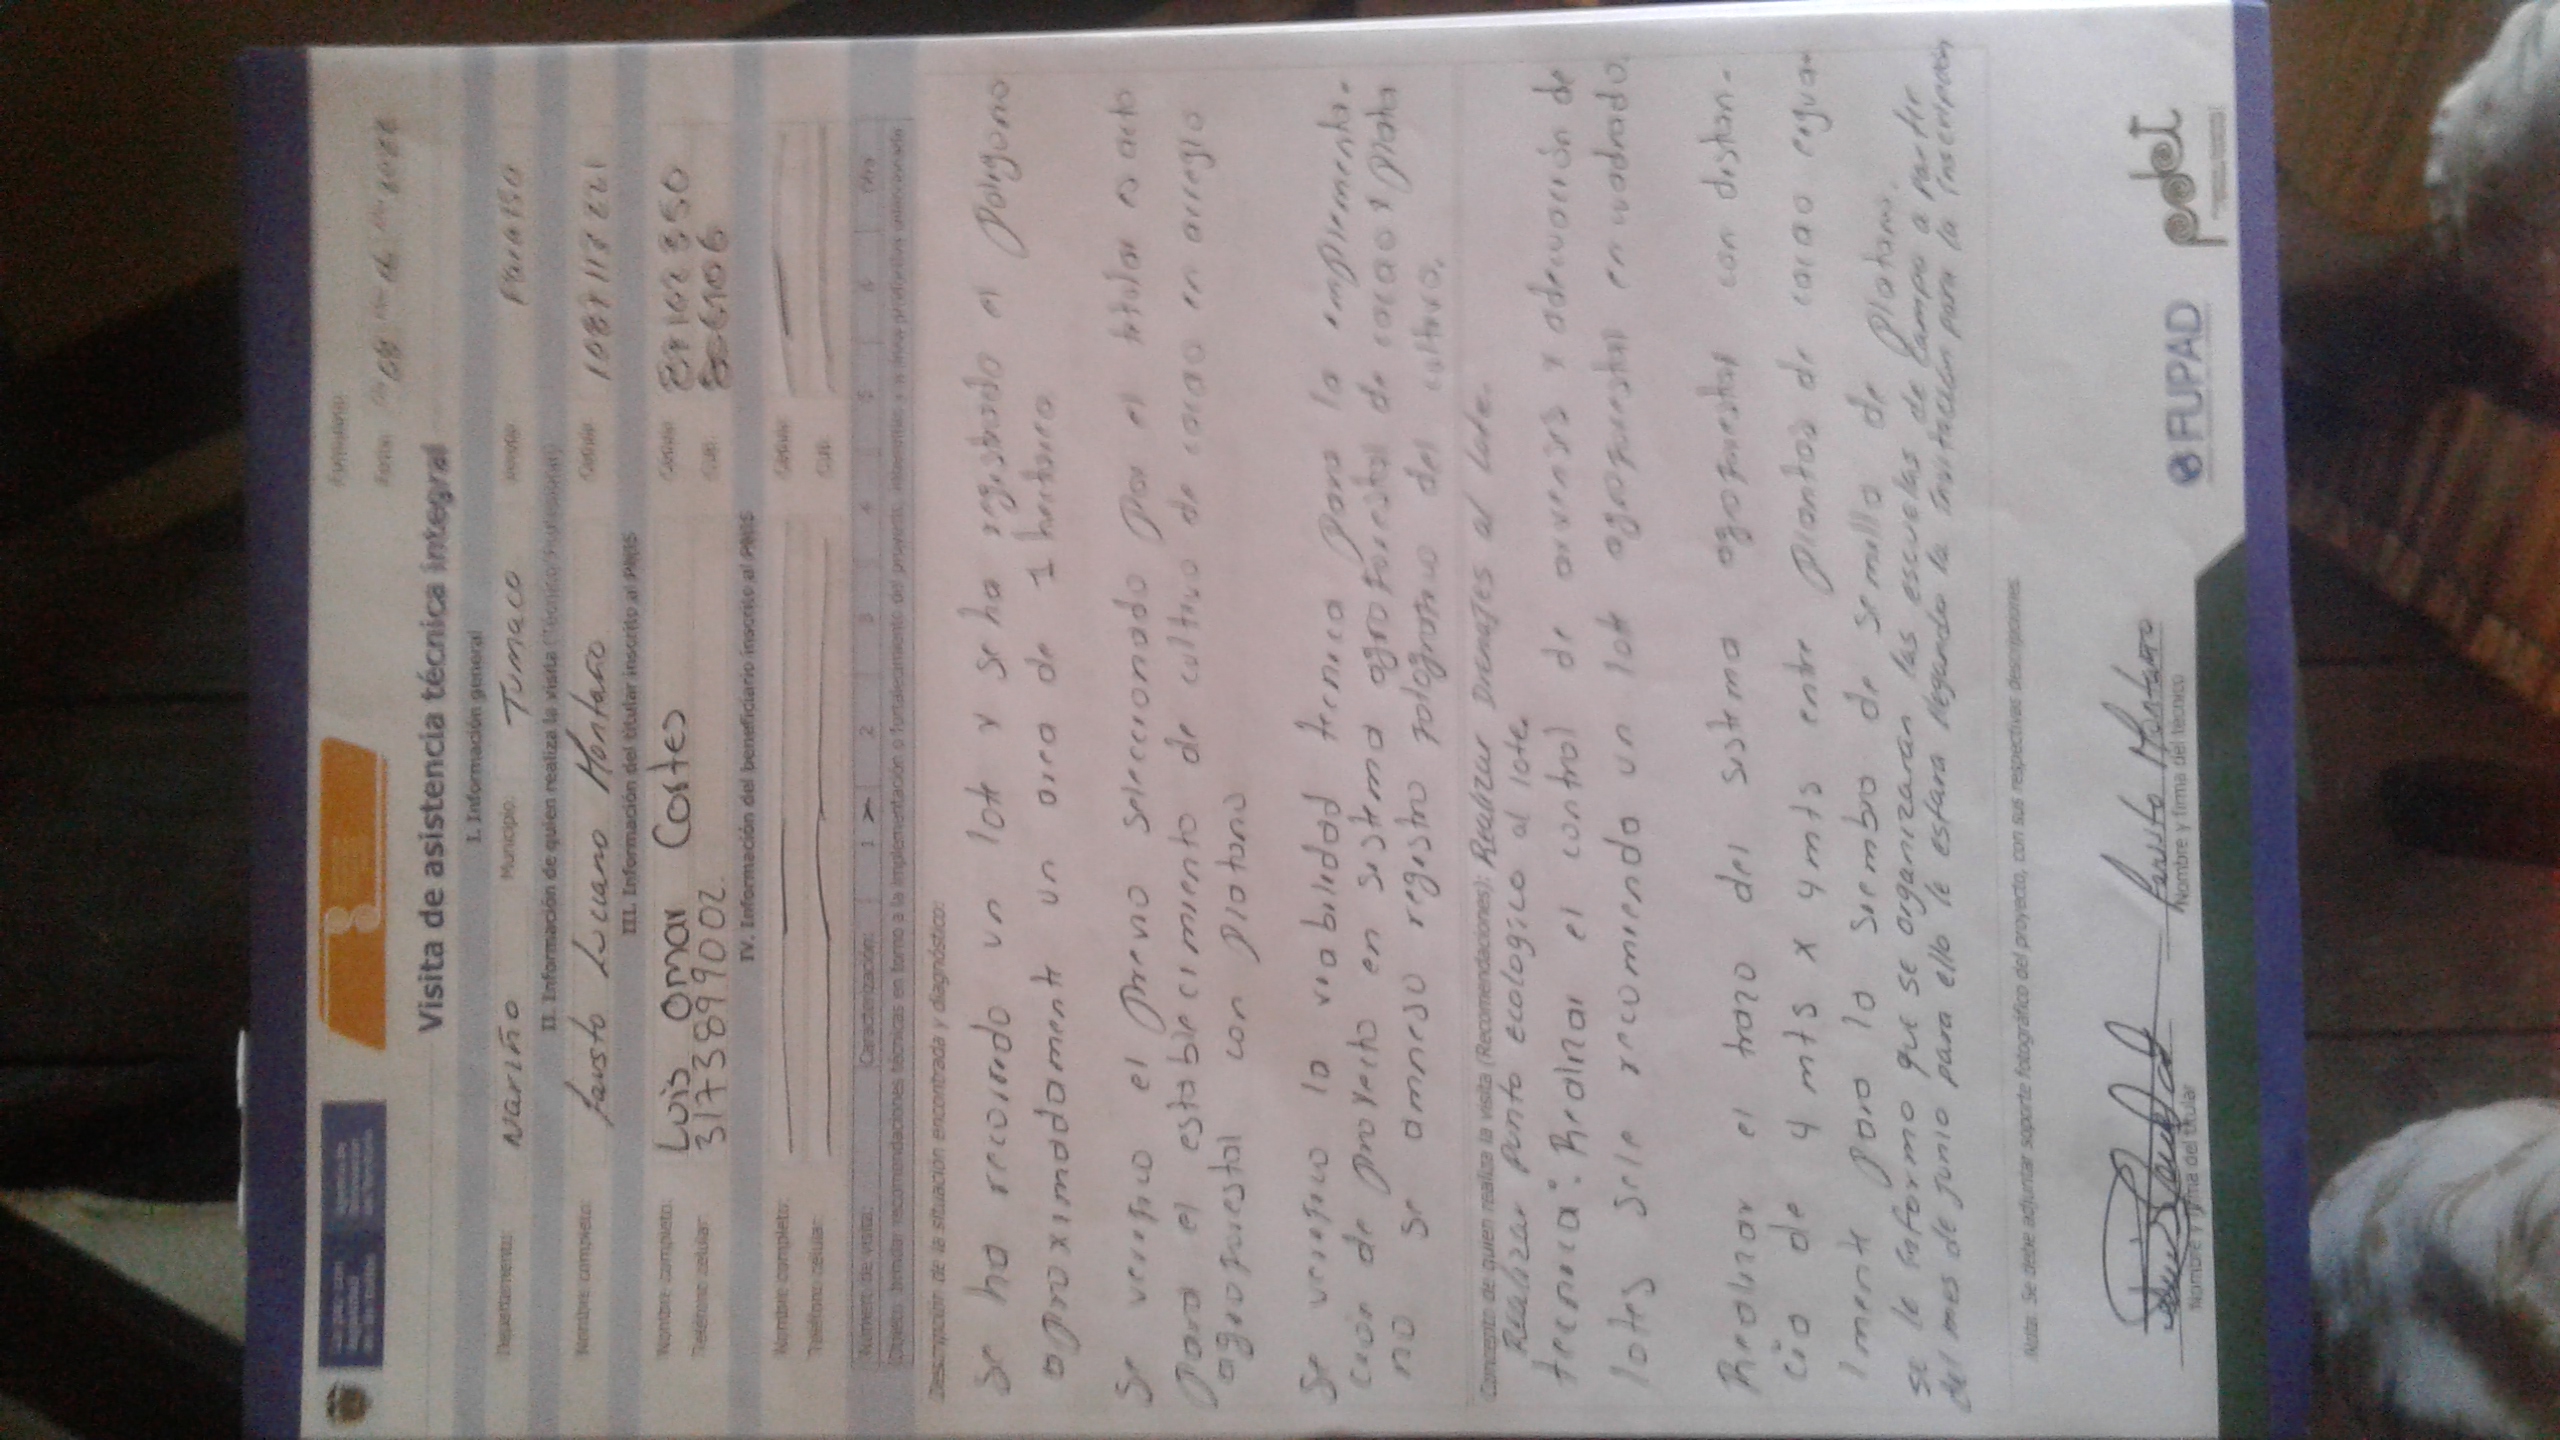 Formulario:
Visita de asistencia técnica integral
I. Información general
Departamento: Nariño Municipio: Tumaco Vereda: Paraiso
II. Información de quien realiza la visita (Técnico/Profesional)
Nombre completo: Fausto Luciano Montaño Cedula: 1087113221
III. Información del titular inscrito al PNIS
Nombre completo: Luis Omar Cortes Cedula:
Telefono celular: 3173899002 CUB:
IV. Información del beneficiario inscrito al PNIS
Nombre completo: Cedula:
Teléfono celular: CUB:
Número de visita: Caracterización: 1 2 3 4 5 6 Otro
Descripción de la situación encontrada y diagnóstico:
Se ha recorrido un lote y se ha registrado el poligono
aproximadamente un area de 1 hectarea
Se verifico el preno seleccionado por el titular es acto
para el establecimiento de cultivo de cacao en arreglo
agroforestal con platano
Se verifico la viabilidad tecnica para la implementa-
ción de proyecto en sistema agroforestal de cacao y plata
no se anneso registro fotografico del cultivo.
Concepto de quien realiza la visita (Recomendaciones): Realizar Drenajes al lote.
Realizar punto ecologico al lote.
tecnica: Realizar el control de arvenses y adecuación de
lotes se le recomienda un lote agroforestal en cuadrado.
Realizar el trazo del sistema agroforestal con distan-
cia de 4 mts x 4 mts entre plantas de cacao egual
lmente para la siembra de semilla de platano.
se le informo que se organizaran las escuelas de campo a partir
del mes de junio para ello le estara llegando la invitación para la inscripción
Nota: Se debe adjuntar soporte fotográfico del proyecto, con sus respectivas descripciones.
Fausto Montaño
Nombre y firma del titular Nombre y firma del técnico
FUPAD pdet